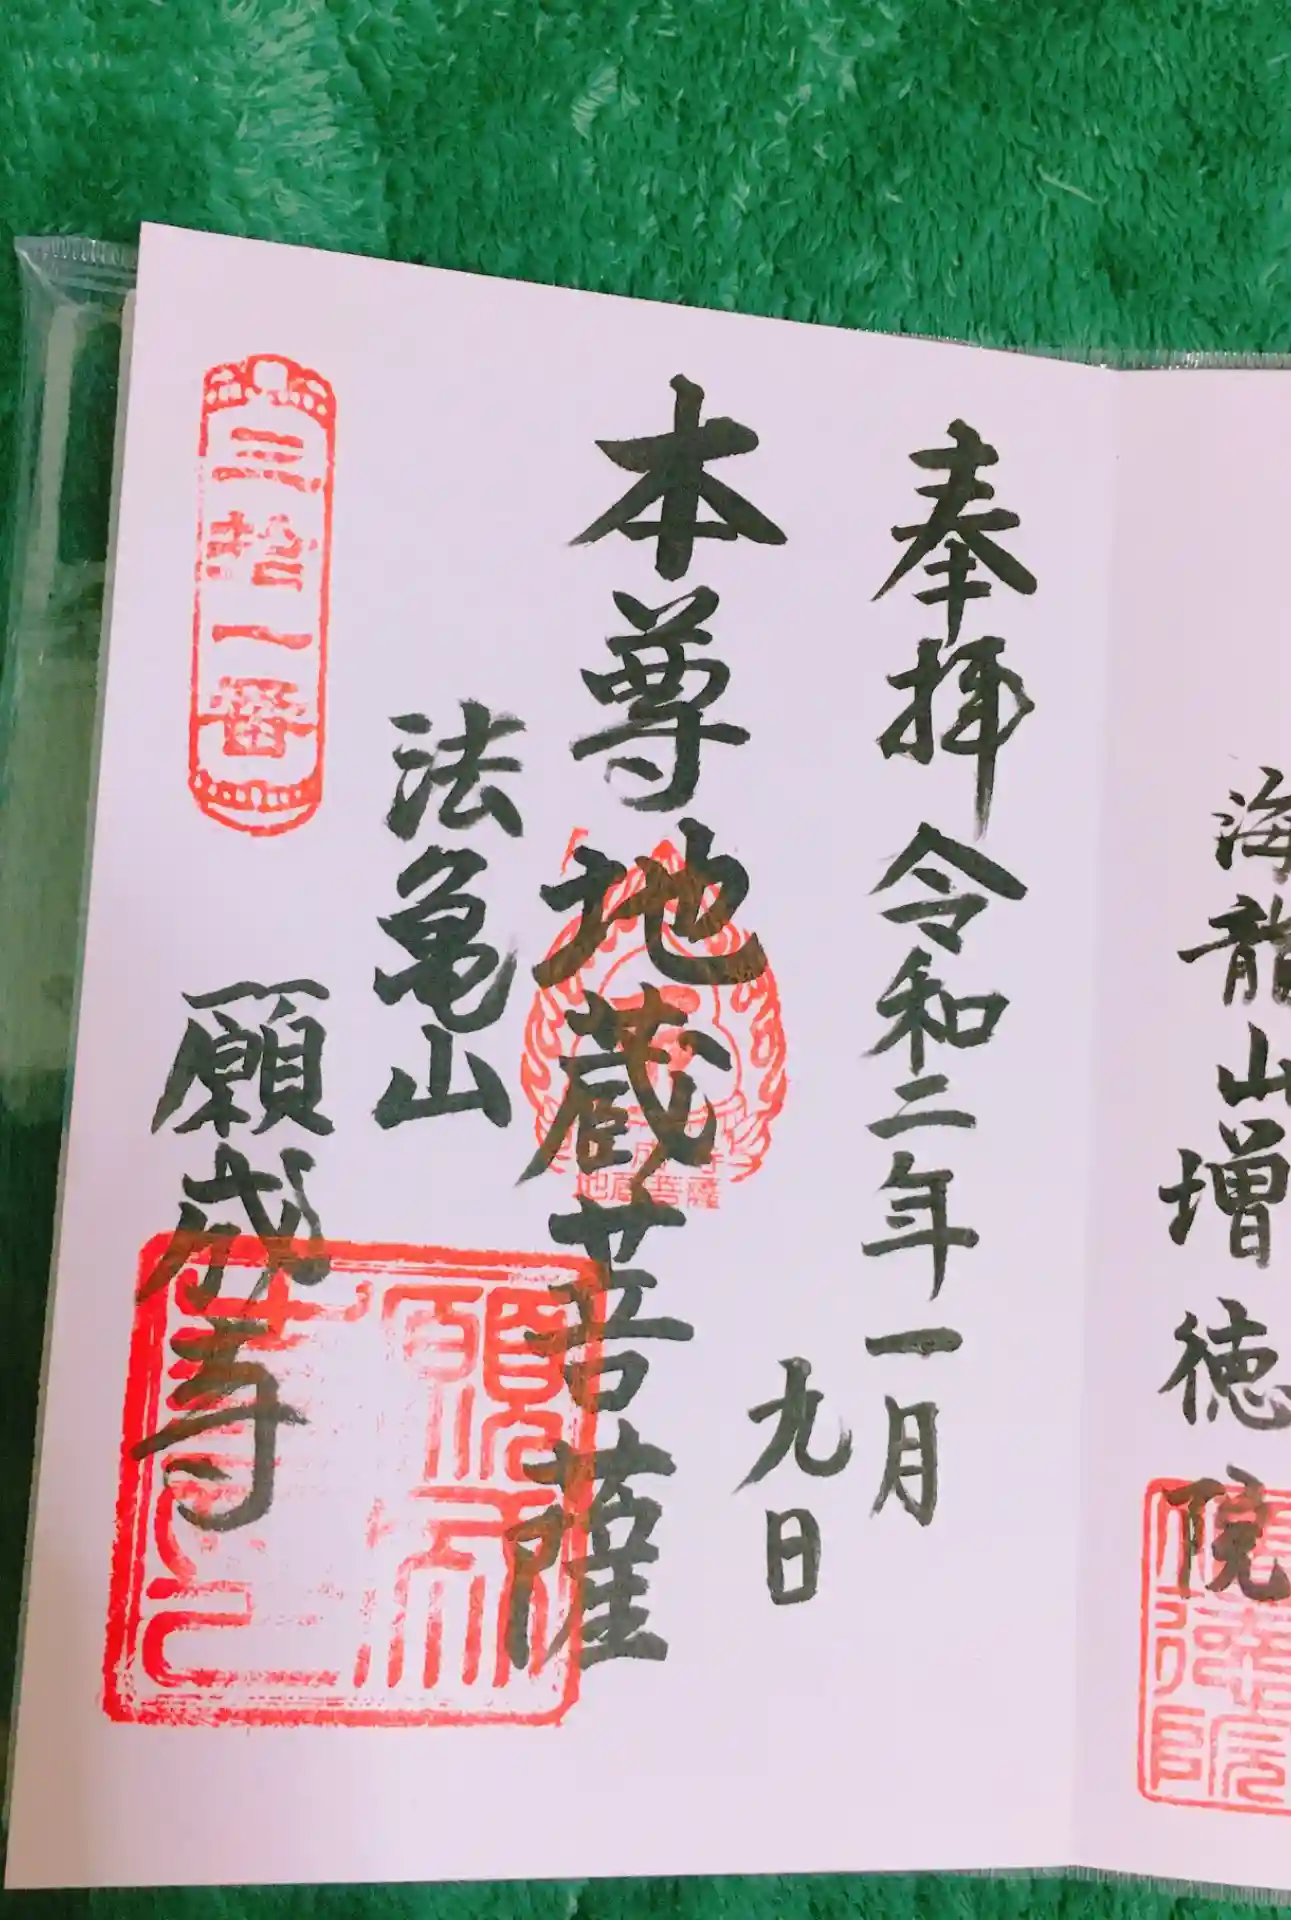 海龍山増徳院
増徳院
奉拝 令和二年一月
九日
本尊地蔵菩薩
地蔵菩薩
法亀山
願成寺
三拾一番